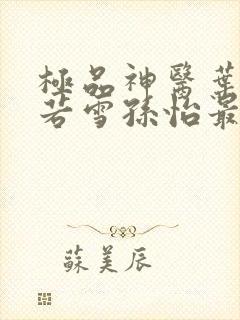 極品神醫葉
若雪孫怡最
蘇美辰